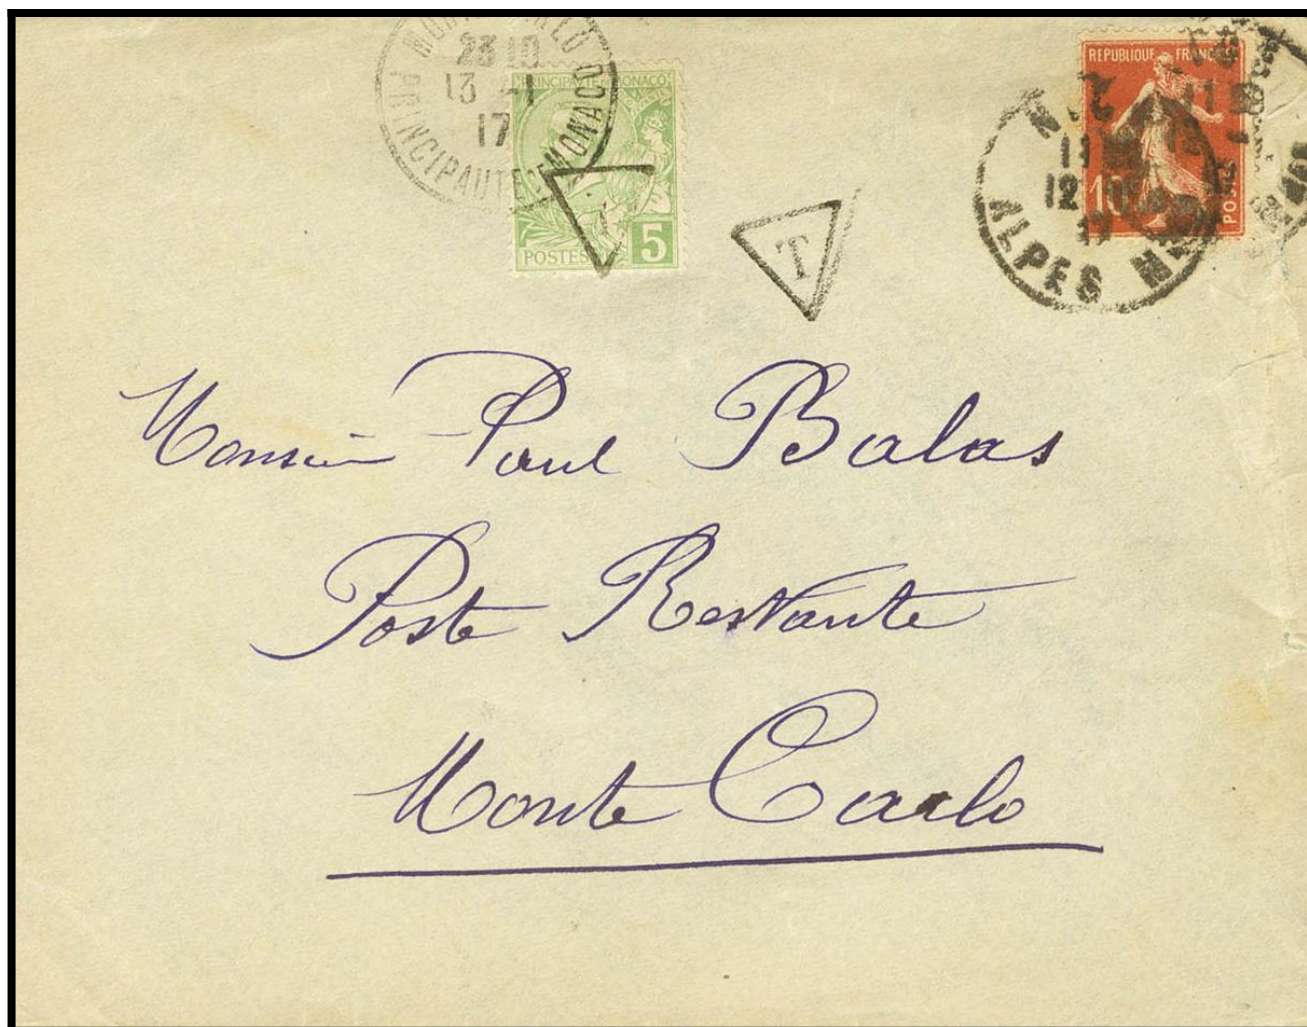 MONTE-CARLO
23 10
13 -1
17
PRINCIPAUTE DE MONACO
PRINCIPAUTE DE MONACO
POSTES 5
T
T
REPUBLIQUE FRANÇAISE
10
POS
12
ALPES
Monsieur Paul Balas
Poste Restante
Monte Carlo